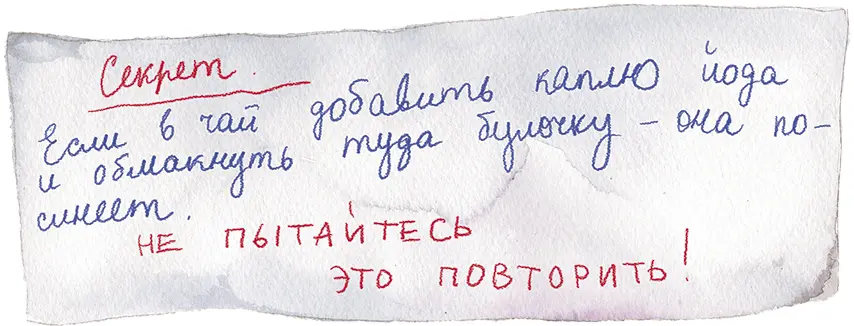 Секрет.
Если в чай добавить каплю йода
и обмакнуть туда булочку – она по-
синеет.
НЕ ПЫТАЙТЕСЬ
ЭТО ПОВТОРИТЬ!